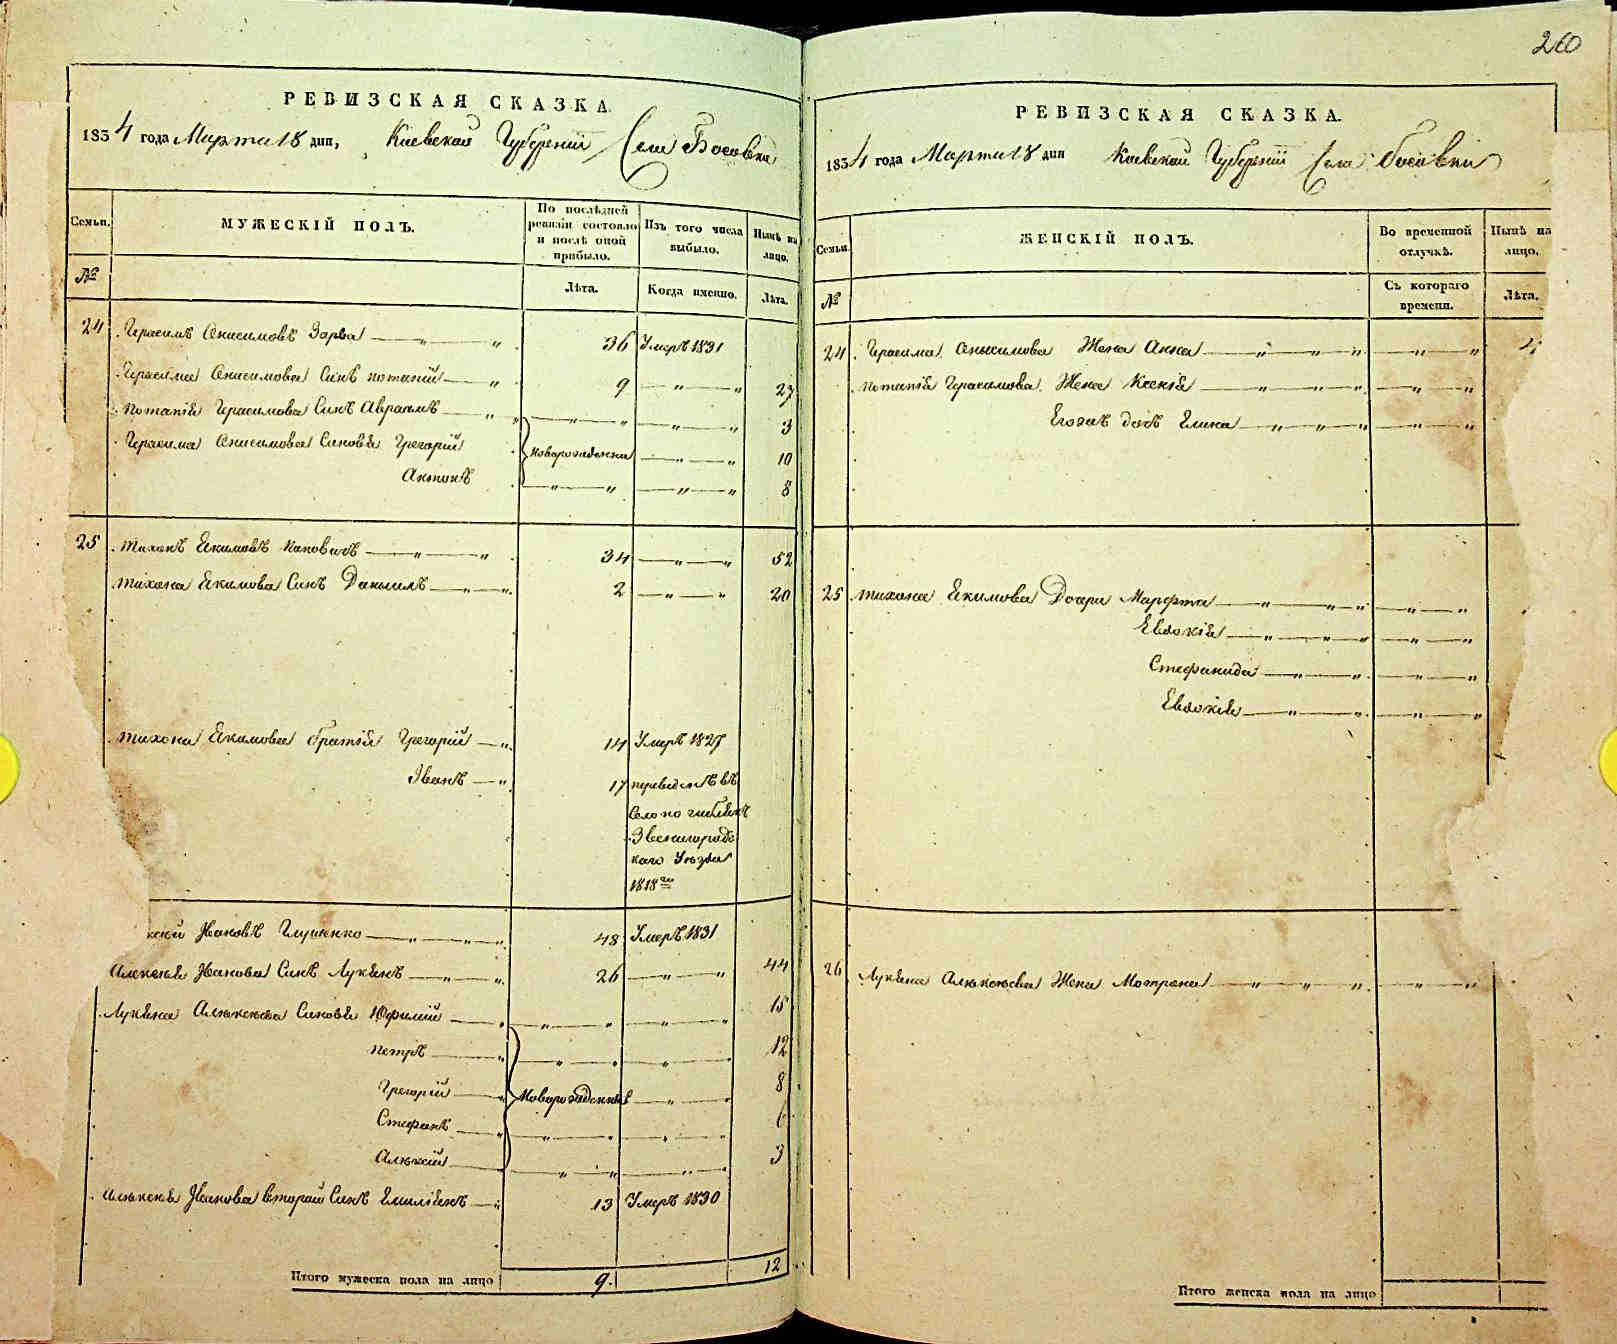 260
РЕВИЗСКАЯ СКАЗКА.
1834 года Марта 18 дня, Киевской Губернии Села Босовки
Семьи.
МУЖЕСКІЙ ПОЛЪ.
По послѣдней ревизіи состояло и послѣ оной прибыло.
Изъ того числа выбыло.
Нынѣ на лицо.
№
Лѣта.
Когда именно.
Лѣта.
24 Герасимъ Онисимовъ Зарва 36 Умеръ 1831
Герасима Онисимова Синъ Потапій 9 27
Потапія Герасимова Синъ Аврамъ 3
Герасима Онисимова Синовья Грегорій новорожденни 10
Антонъ 8
25 Тихонъ Екимовъ 34 52
Тихона Екимова Синъ Даниилъ 2 20
Тихона Екимова братія Грегорій 14 Умеръ 1827
Иванъ 17 переведенъ въ
Село
Звенигородс
каго Уезда
1818 го
Ивановъ Глущенко 48 Умеръ 1831
Алексея Иванова Синъ Лукянъ 26 44
Лукяна Алексеева Синовя Юфимий 15
Петръ 12
Грегорій новорожденни 8
Стефанъ 6
Алексій 3
Алексея Иванова вторий Синъ Емиліянъ 13 Умеръ 1830
Итого мужеска пола на лицо 9. 12
РЕВИЗСКАЯ СКАЗКА.
1834 года Марта 18 дня Киевской Губернии Села Босовки
Семьи.
ЖЕНСКІЙ ПОЛЪ.
Во временной отлучкѣ.
Нынѣ на лицо.
№
Съ котораго времени.
Лѣта.
24 Герасима Онисимова Жена Анна 4
Потапія Герасимова Жена Ксенія
Его дочь Елина
25 Тихона Екимова Дочери Марфта
Евдокія
Стефанида
Евдокія
26 Лукяна Алексеева Жена Мотрона
Итого женска пола на лицо